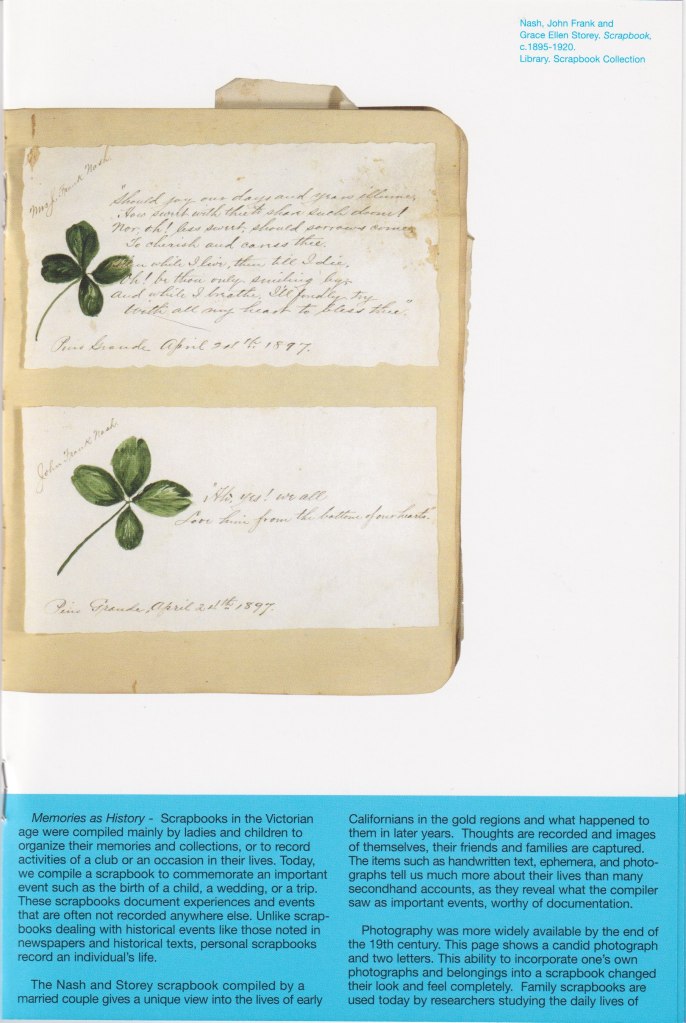 Nash, John Frank and
Grace Ellen Storey. Scrapbook,
c.1895-1920.
Library. Scrapbook Collection
Frank Nash.
"Should joy our days and years illume,
How sweet with thee to share such doom!
Nor, oh! less sweet, should sorrows come,
To cherish and caress thee.
Then while I live, then till I die,
Oh! be thou only smiling by,
And while I breathe, I'll fondly try
With all my heart to bless thee."
Pino Grande April 24th 1897.
John Frank Nash.
"Ah, yes! we all
Love him from the bottom of our hearts.
Pino Grande, April 24th 1897
Memories as History - Scrapbooks in the Victorian
age were compiled mainly by ladies and children to
organize their memories and collections, or to record
activities of a club or an occasion in their lives. Today,
we compile a scrapbook to commemorate an important
event such as the birth of a child, a wedding, or a trip.
These scrapbooks document experiences and events
that are often not recorded anywhere else. Unlike scrap-
books dealing with historical events like those noted in
newspapers and historical texts, personal scrapbooks
record an individual's life.
The Nash and Storey scrapbook compiled by a
married couple gives a unique view into the lives of early
Californians in the gold regions and what happened to
them in later years. Thoughts are recorded and images
of themselves, their friends and families are captured.
The items such as handwritten text, ephemera, and photo-
graphs tell us much more about their lives than many
secondhand accounts, as they reveal what the compiler
saw as important events, worthy of documentation.
Photography was more widely available by the end of
the 19th century. This page shows a candid photograph
and two letters. This ability to incorporate one's own
photographs and belongings into a scrapbook changed
their look and feel completely. Family scrapbooks are
used today by researchers studying the daily lives of